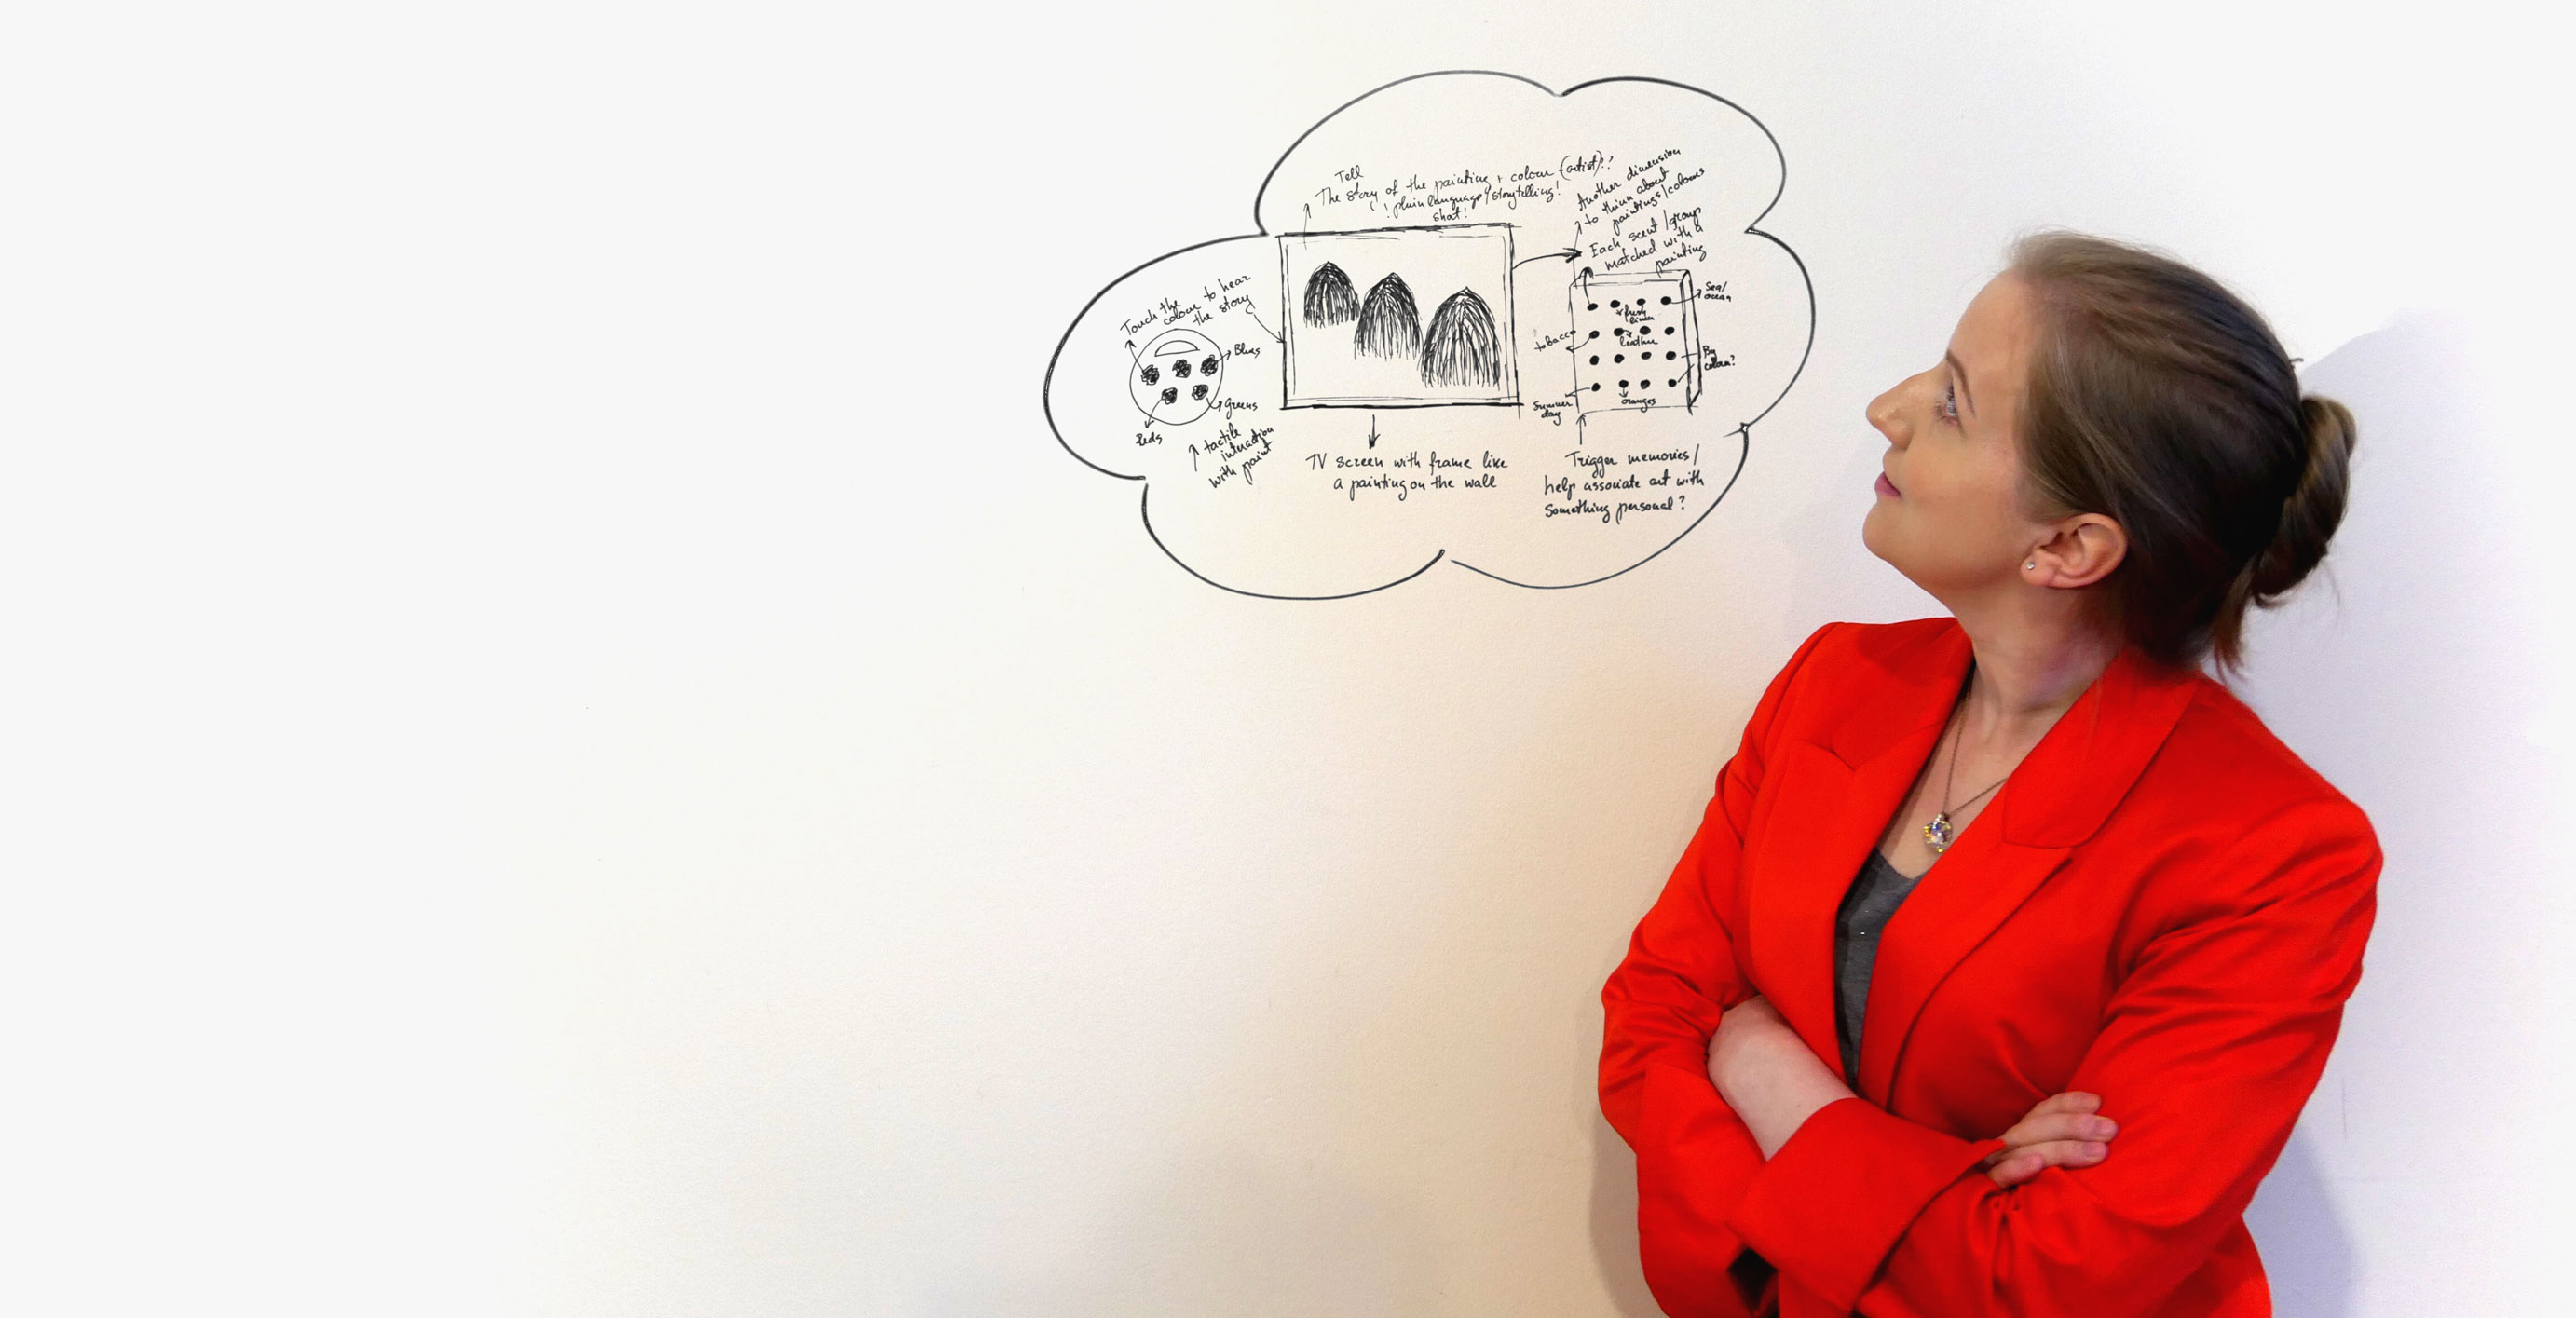 Tell
The story of the painting + colour (artist)??
! plain language / storytelling!
shot!
Another dimension
to think about
paintings/colours
Each scent/group
matched with a
painting
Touch the
colour to hear
the story
Blues
Greens
Reds
tactile
interaction
with paint
TV screen with frame like
a painting on the wall
Sea/
ocean
fresh
linen
tobacco
leather
By
colour?
Summer
day
oranges
Trigger memories/
help associate art with
something personal?